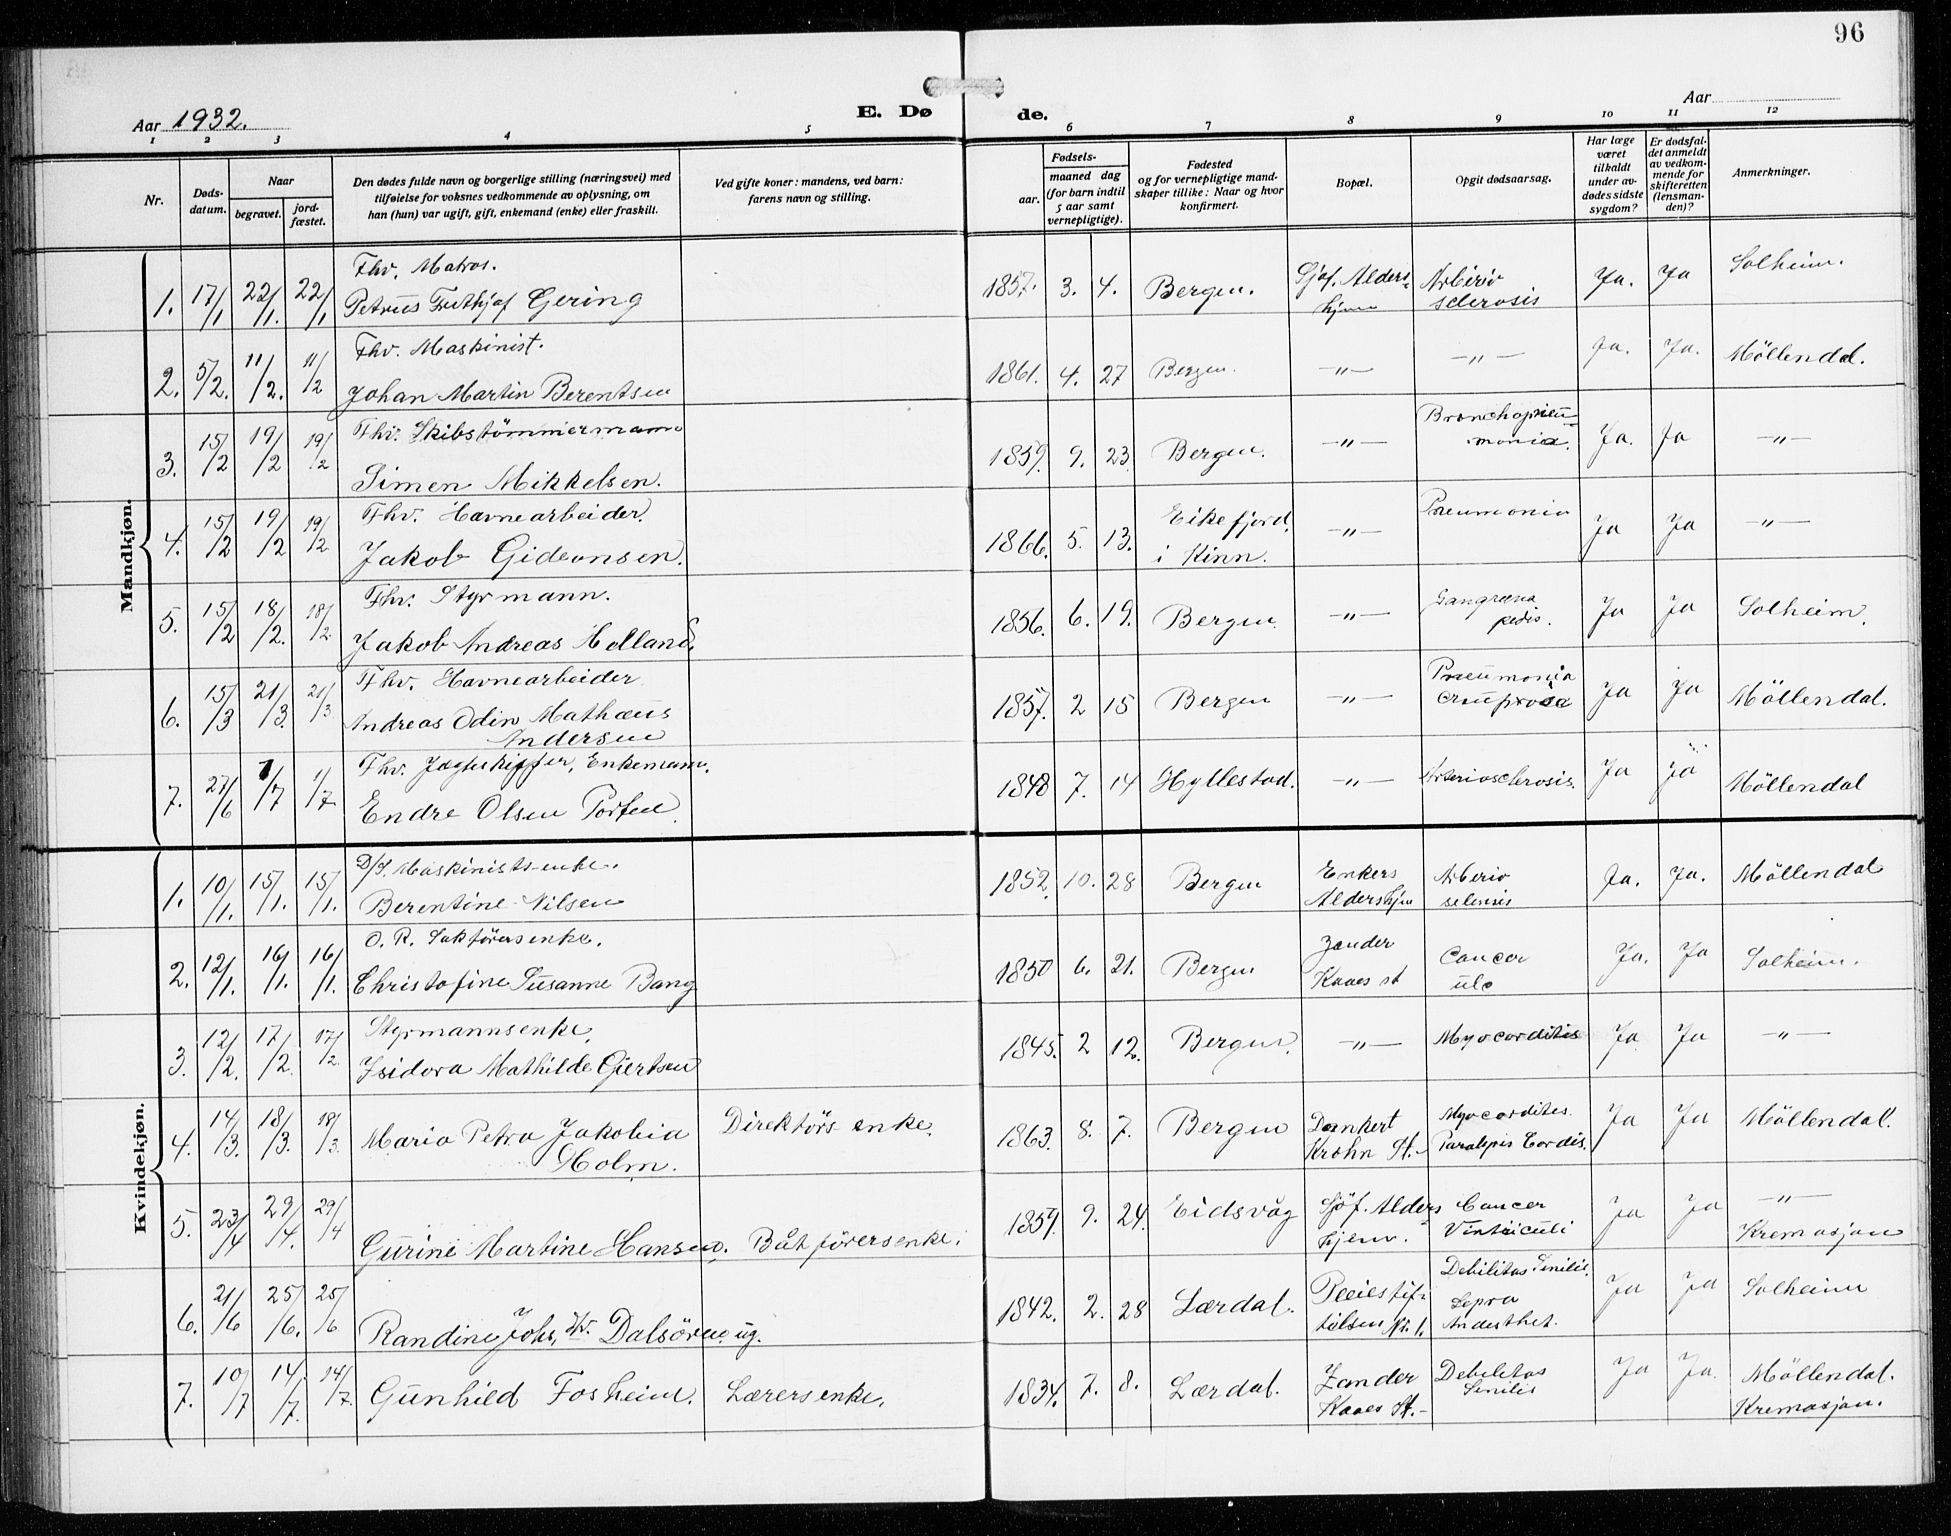 96
Aar 1932.
E. Dø de.
Aar
1 2 3 4 5 6 7 8 9 10 11 12
Nr.
Døds-
datum.
Naar
begravet.
jord-
fæstet.
Den dødes fulde navn og borgerlige stilling (næringsvei) med
tilføielse for voksnes vedkommende av oplysning, om
han (hun) var ugift, gift, enkemand (enke) eller fraskilt.
Ved gifte koner: mandens, ved barn:
farens navn og stilling.
Fødsels-
aar.
maaned dag
(for barn indtil
5 aar samt
vernepligtige).
Fødested
og for vernepligtige mand-
skaper tillike: Naar og hvor
konfirmert.
Bopæl.
Opgit dødsaarsag.
Har læge
været
tilkaldt
under av-
dødes sidste
sygdom?
Er dødsfal-
det anmeldt
av vedkom-
mende for
skifteretten
(lensman-
den)?
Anmerkninger.
Mandkjøn.
Fhv. Matros.
1. 17/1 22/1. 22/1 Petrus Frithjof Gering 1857. 3. 4. Bergen. Sjøf. Alders-
hjem Arterio
sclerosis Ja. Ja Solheim.
Fhv. Maskinist.
2. 5/2. 11/2. 11/2 Johan Martin Berentsen 1861. 4. 27 Bergen. —„— —„— Ja. Ja. Möllendal.
Fhv. Skibstömmermann
3. 15/2 19/2 19/2 Simen Mikkelsen. 1859. 9. 23 Bergen. —„— Bronchopneu-
monia. Ja. Ja —„—
Fhv. Havnearbeider.
4. 15/2 19/2 19/2 Jakob Gideonsen. 1866. 5. 13. Eikefjord
i Kinn. —„— Pneumonia Ja Ja —„—
Fhv. Styrmann.
5. 15/2 18/2. 18/2 Jakob Andreas Holland. 1856. 6. 19. Bergen —„— Gangræna
pedis. Ja Ja Solheim.
Fhv. Havnearbeider
6. 15/3 21/3. 21/3 Andreas Odin Mathæus
Andersen 1857. 2 15 Bergen —„— Pneumonia
crouposa Ja Ja Möllendal.
Fhv. Jægteskipper, Enkemann.
7. 27/6 1/7 1/7 Endre Olsen 1848 7. 14 Hyllestad. —„— Arteriosclerosis. Ja Ja Möllendal
Kvindekjøn.
D/S. Maskinistsenke.
1. 10/1. 15/1. 15/1. Berentine Nilsen 1852. 10. 28 Bergen Enkers
Aldershjem Arterio Ja. Ja. Möllendal
O. R. Sakförersenke.
2. 12/1. 16/1. 16/1. Christofine Susanne Bang 1850 6. 21. Bergen Zander
Kaaes st Cancer Ja. Ja Solheim.
Styrmannsenke.
3. 12/2. 17/2. 17/2 Isidora Mathilde Gjertsen 1845. 2 12. Bergen. —„— Myocarditis Ja Ja —„—
4. 14/3. 18/3. 18/3. Maria Petra Jakobia
Holm. Direktörs enke. 1863. 8. 7. Bergen Dankert
Krohn St. Myocardites.
Paralysis Cordis. Ja Ja Möllendal.
5. 23/4 29/4. 29/4 Gurine Martine Hansen. Båtförersenke. 1859. 9. 24. Eidsvåg Sjöf. Alders
hjem. Cancer
Vintriculi Ja Ja —„—
Kremasjon
6. 21/6 25/6. 25/6 Randine Johs. dtr. Dalsören ug. 1842. 2. 28 Lærdal. Pleiestif-
telsen Nr. 1. Debilitas Senilis.
Lepra
Anæsthet. Ja Ja Solheim
7. 10/7 14/7. 14/7. Gunhild Fosheim. Lærersenke. 1834. 7. 8. Lærdal. Zander
Kaaes St. Debilitas
Senilis Ja Ja. Möllendal.
Kremasjon.